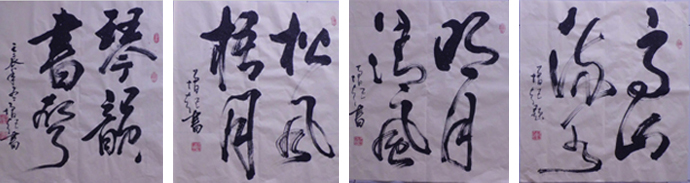 琴韻
書聲
松風
梧月
明月
清風
高山
流水